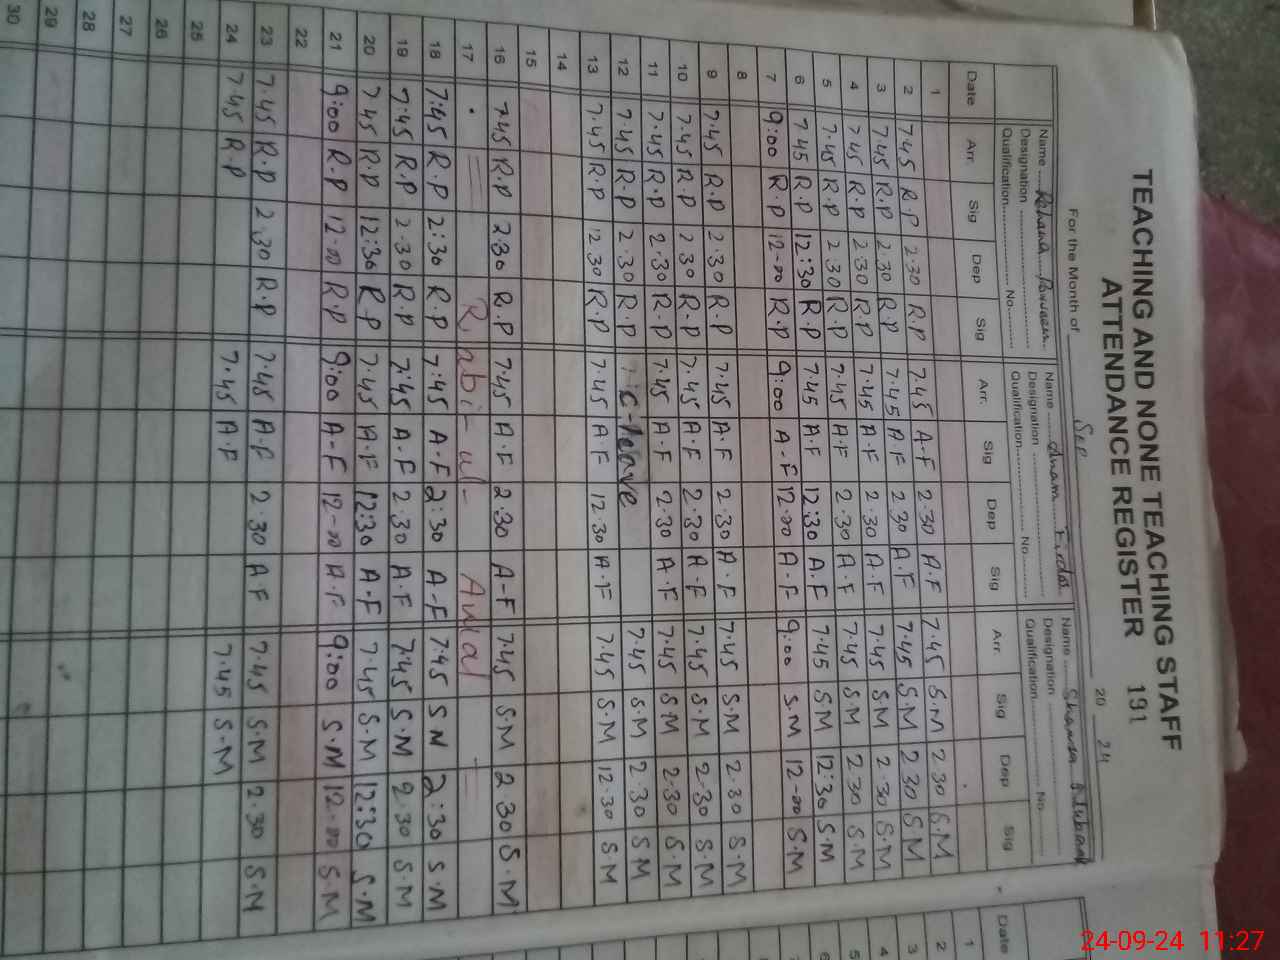 TEACHING AND NONE TEACHING STAFF
ATTENDANCE REGISTER 131
For the Month of Sep 20 24
Name Rehana Name Anam Name Shamsa
Designation Designation Designation
Qualification No. Qualification No. Qualification No.
Date Arr. Sig Dep Sig Arr. Sig Dep Sig Arr. Sig Dep Sig Date
1 1
2 7.45 R.P 2.30 R.P 7.45 A.F 2.30 A.F 7.45 S.M 2.30 S.M 2
3 7.45 R.P 2.30 R.P 7.45 A.F 2.30 A.F 7.45 S.M 2.30 S.M 3
4 7.45 R.P 2.30 R.P 7.45 A.F 2.30 A.F 7.45 S.M 2.30 S.M 4
5 7.45 R.P 2.30 R.P 7.45 A.F 2.30 A.F 7.45 S.M 2.30 S.M 5
6 7.45 R.P 12:30 R.P 7.45 A.F 12:30 A.F 7.45 S.M 12:30 S.M
7 9:00 R.P 12-00 R.P 9:00 A-F 12.00 A-F 9:00 S.M 12-00 S.M 7
8
9 7.45 R.P 2.30 R.P 7.45 A.F 2.30 A.F 7.45 S.M 2.30 S.M
10 7.45 R.P 2.30 R.P 7.45 A.F 2.30 A.F 7.45 S.M 2.30 S.M
11 7.45 R.P 2.30 R.P 7.45 A.F 2.30 A.F 7.45 S.M 2.30 S.M
12 7.45 R.P 2.30 R.P c-leave 7.45 S.M 2.30 S.M
13 7.45 R.P 12.30 R.P 7.45 A.F 12.30 A.F 7.45 S.M 12.30 S.M
14
15
16 7.45 R.P 2.30 R.P 7.45 A.F 2.30 A-F 7.45 S.M 2.30 S.M
17 Rabi-ul-Awal
18 7:45 R.P 2:30 R.P 7:45 A-F 2:30 A-F 7.45 S M 2:30 S.M
19 7:45 R.P 2.30 R.P 7:45 A.F 2.30 A.F 7.45 S.M 2.30 S.M
20 7.45 R.P 12:30 R.P 7.45 A.F 12:30 A.F 7.45 S.M 12:30 S.M
21 9:00 R.P 12-00 R.P 9:00 A-F 12-00 A.F 9:00 S.M 12.00 S.M
22
23 7.45 R.P 2.30 R.P 7.45 A.F 2.30 A F 7.45 S.M 2.30 S.M
24 7.45 R.P 7.45 A.F 7.45 S.M
25
26
27
28
29
30
24-09-24 11:27